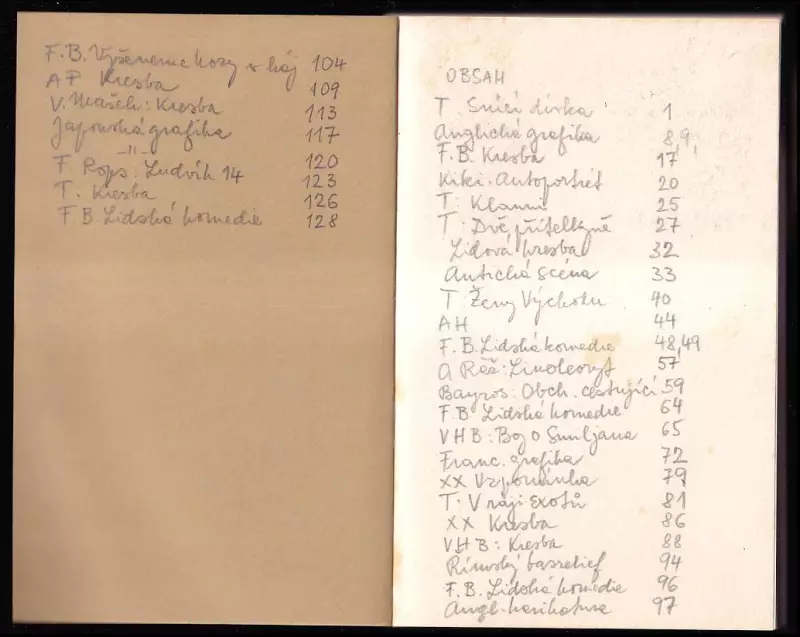 F.B. Vyženeme kozy v háj 104
AP Kresba 109
V. Mašek: Kresba 113
Japonská grafika 117
-"- 120
F. Rops: Ludvík 14 123
T. Kresba 126
F.B. Lidská komedie 128
OBSAH
T. Snící dívka 1
Anglická grafika 8,9,
F.B. Kresba 17
Kiki: Autoportrét 20
T: Klauni 25
T: Dvě přítelkyně 27
Lidová kresba 32
Antická scéna 33
T Ženy Východu 40
AH 44
F.B. Lidská komedie 48,49
A Réž: Linoleoryt 57
Bayros: Obch. cestující 59
F.B Lidská komedie 64
VHB: Boj o Smiljana 65
Franc. grafika 72
XX Vzpomínka 79
T. V ráji exotů 81
XX Kresba 86
VHB: Kresba 88
Římský bassrelief 94
F.B. Lidská komedie 96
Angl. karikatura 97